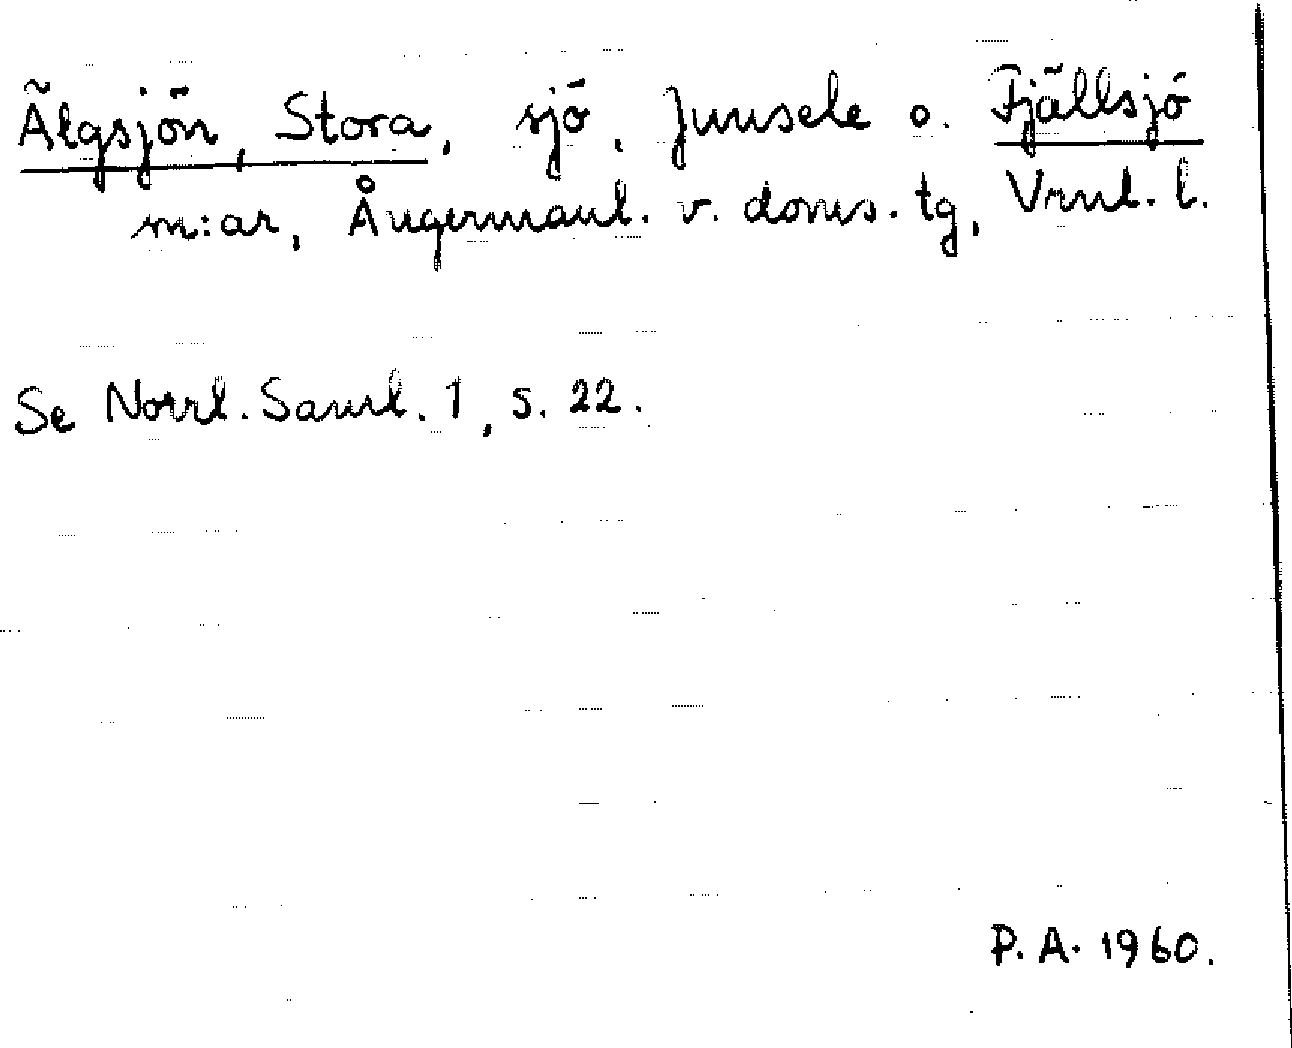 Älgsjön, Stora, sjö, Junsele o. Fjällsjö
m:ar, Ångermanl. v. doms. tg, Vrnl. l.
Se Norrl. Saml. 1, s. 22.
P. A. 1960.